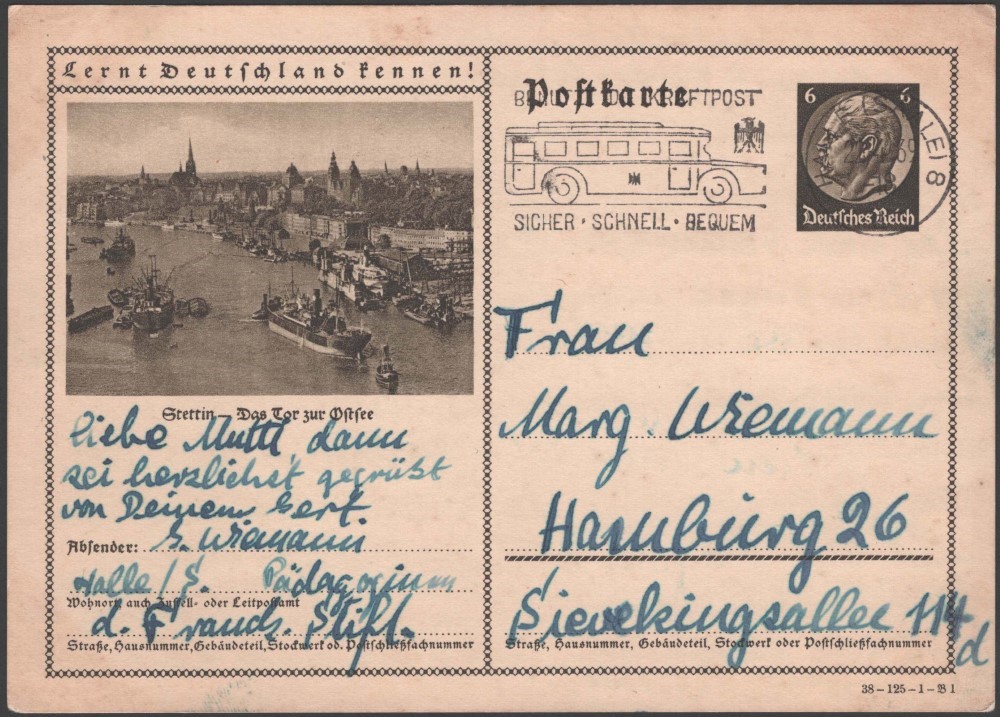 Lernt Deutschland kennen!
Stettin – Das Tor zur Ostsee
liebe Mutti, dann
sei herzlichst gegrüßt
von Deinem Gert.
Absender: G. Wiemann
Halle/S. Pädagogium
Wohnort, auch Zustell- oder Leitpostamt
d. Franck. Stift.
Straße, Hausnummer, Gebäudeteil, Stockwerk od. Postschließfachnummer
Postkarte
KRAFTPOST
SICHER · SCHNELL · BEQUEM
6 6
ALE) 8
Deutsches Reich
Frau
Marg. Wiemann
Hamburg 26
Sievekingsallee 114
d
Straße, Hausnummer, Gebäudeteil, Stockwerk oder Postschließfachnummer
38–125–1–B 1